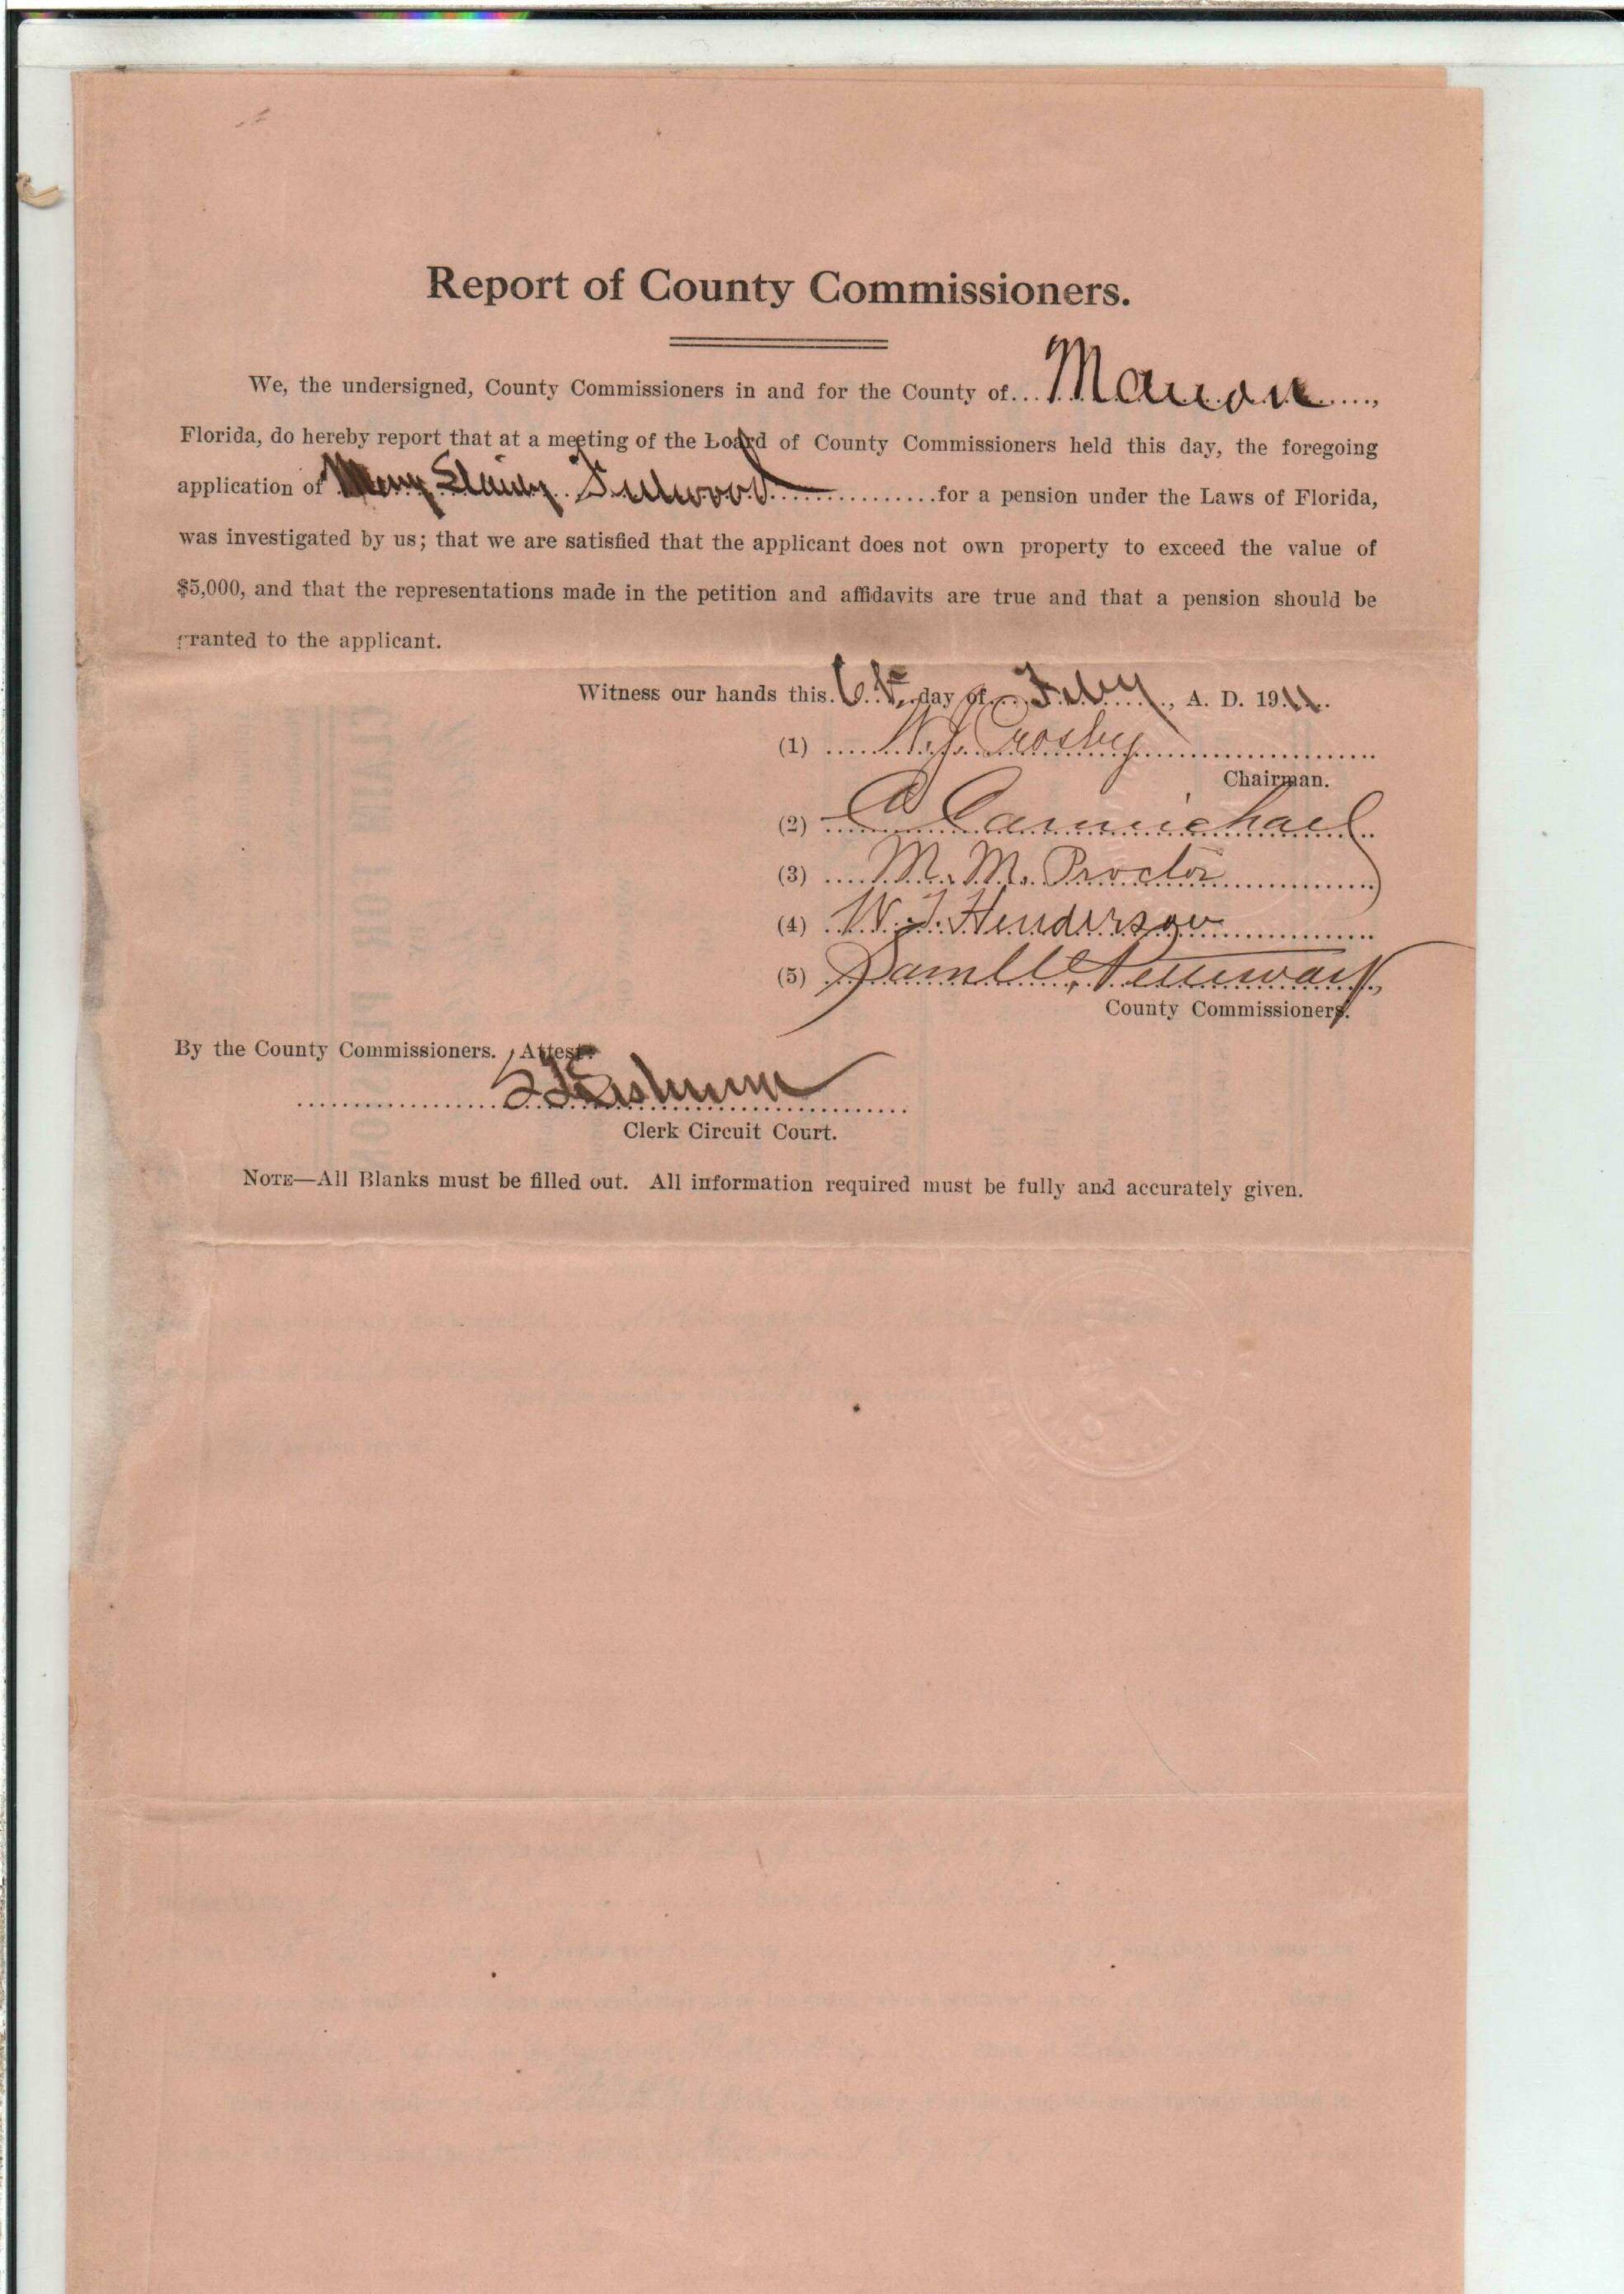 Report of County Commissioners.
We, the undersigned, County Commissioners in and for the County of... Marion ....,
Florida, do hereby report that at a meeting of the Board of County Commissioners held this day, the foregoing
application of Mary ..............for a pension under the Laws of Florida,
was investigated by us; that we are satisfied that the applicant does not own property to exceed the value of
$5,000, and that the representations made in the petition and affidavits are true and that a pension should be
granted to the applicant.
Witness our hands this. 6th day of... Feby ...., A. D. 1911.
(1) ..... W. J. Crosby ..........
Chairman.
(2) Carmichael
(3) .... M. M. Proctor ..........
(4) W. J. Henderson ..........
(5)
County Commissioners.
By the County Commissioners. Attest:
Clerk Circuit Court.
NOTE—All Blanks must be filled out. All information required must be fully and accurately given.